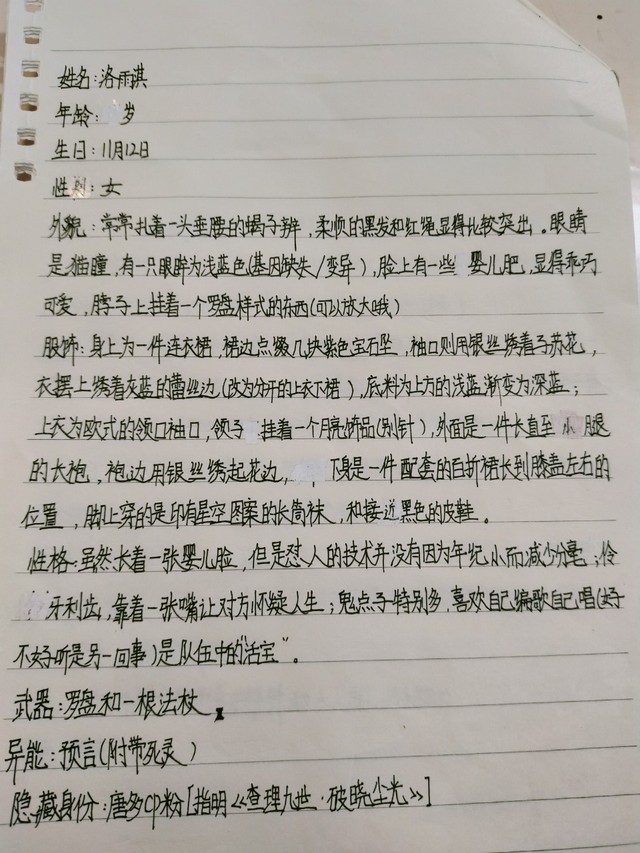 姓名:洛雨淇
年龄: 岁
生日:11月12日
性别:女
外貌:常常扎着一头垂腰的蝎子辫,柔顺的黑发和红绳显得比较突出。眼睛
是猫瞳,有一只眼眸为浅蓝色(基因缺失/变异),脸上有一些 婴儿肥,显得乖巧
可爱,脖子上挂着一个罗盘样式的东西(可以放大哦)
服饰:身上为一件连衣裙,裙边点缀几块紫色宝石坠,袖口则用银丝绣着子苏花,
衣摆上绣着灰蓝的蕾丝边(改为分开的上衣下裙),底料为上方的浅蓝渐变为深蓝;
上衣为欧式的领口袖口,领子 挂着一个月亮饰品(别针),外面是一件长直至 小 腿
的长袍,袍边用银丝绣起花边, ,下身是一件配套的百折裙长到膝盖左右的
位置,脚上穿的是印有星空图案的长筒袜,和接近黑色的皮鞋。
性格:虽然长着一张婴儿脸,但是怼人的技术并没有因为年纪小而减少分毫;伶
牙利齿,靠着一张嘴让对方怀疑人生;鬼点子特别多,喜欢自己编歌自己唱(好
不好听是另一回事)是队伍中的"活宝"。
武器:罗盘和一根法杖
异能:预言(附带死灵)
隐藏身份:唐多cp粉[指明《查理九世·破晓尘光》]